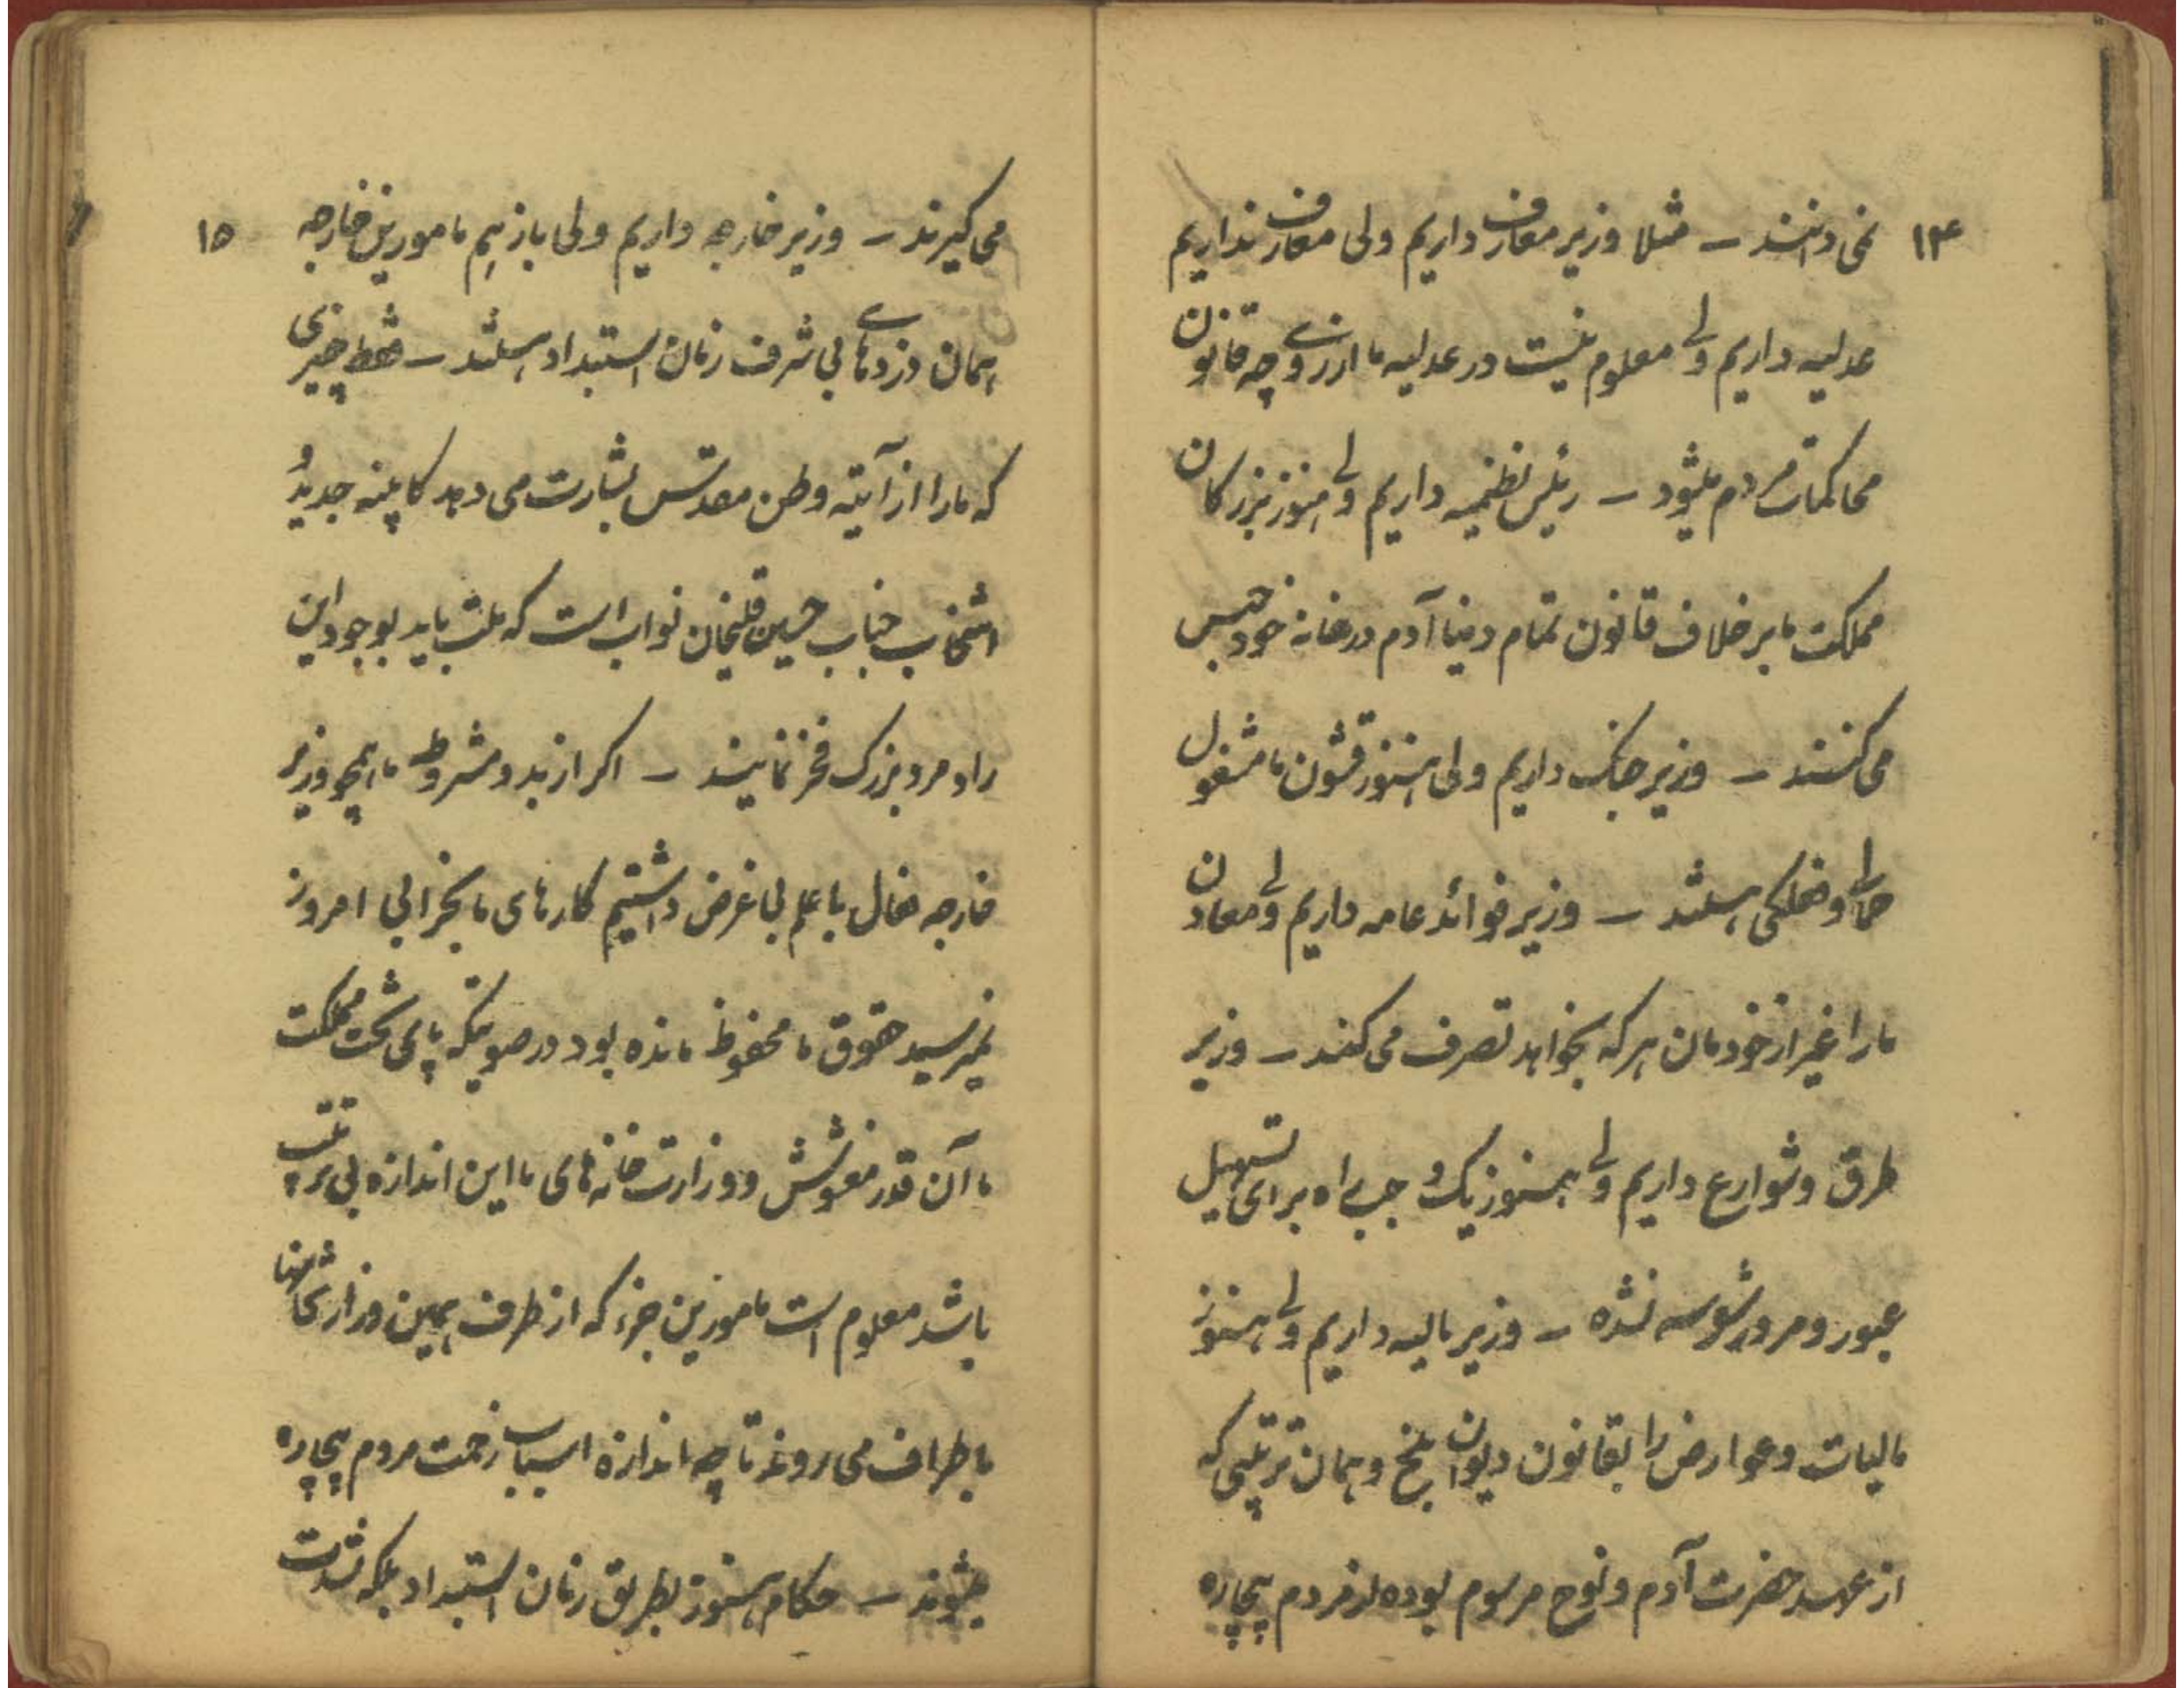 ۱۴
نمی‌دانند ــ مثلا وزیر معارف داریم ولی معارف نداریم
عدلیه داریم ولی معلوم نیست در عدلیه ما از روی چه قانون
محاکمات مردم میشود ــ رئیس نظمیه داریم ولی هنوز بزرکان
مملکت ما برخلاف قانون تمام دنیا آدم در خانه خود حبس
می‌کنند ــ وزیر جنک داریم ولی هنوز قشون ما مشغول
حمالی و هستند ــ وزیر فوائد عامه داریم ولی معادن
ما را غیر از خودمان هر که بخواهد تصرف می‌کند ــ وزیر
طرق و شوارع داریم ولی هنوز یک وجب راه برای تسهیل
عبور و مرور شوسه نشده ــ وزیر مالیه داریم ولی هنوز
مالیات و عوارض را بقانون دیوان بلخ و همان ترتیبی که
از عهد حضرت آدم و نوح مرسوم بوده از مردم بیچاره
۱۵
می‌کیرند ــ وزیر خارجه داریم ولی باز هم مامورین خارجه
همان دزدهای بی شرف زمان استبداد هستند ــ فقط چیزی
که ما را از آتیه وطن مقدس بشارت می‌دهد کابینه جدید و
انتخاب جناب حسین قلیخان نواب است که ملت باید بوجود این
راد مرد بزرک فخر نمایند ــ اکر از بدو مشروطه ما همچو وزیر
خارجه فعال با علم بی غرض داشتیم کارهای ما بخرابی امروز
نمیرسید حقوق ما محفوظ مانده بود در صورتیکه پای تخت مملکت
ما آن قدر مغشوش و وزارت خانه های ما این اندازه بی ترتیب
باشد معلوم است مامورین جزء که از طرف همین وزارتخانها
باطراف می‌روند تا چه اندازه اسباب زحمت مردم بیچاره
میشوند ــ حکام هنوز بطریق زمان استبداد بلکه شدت